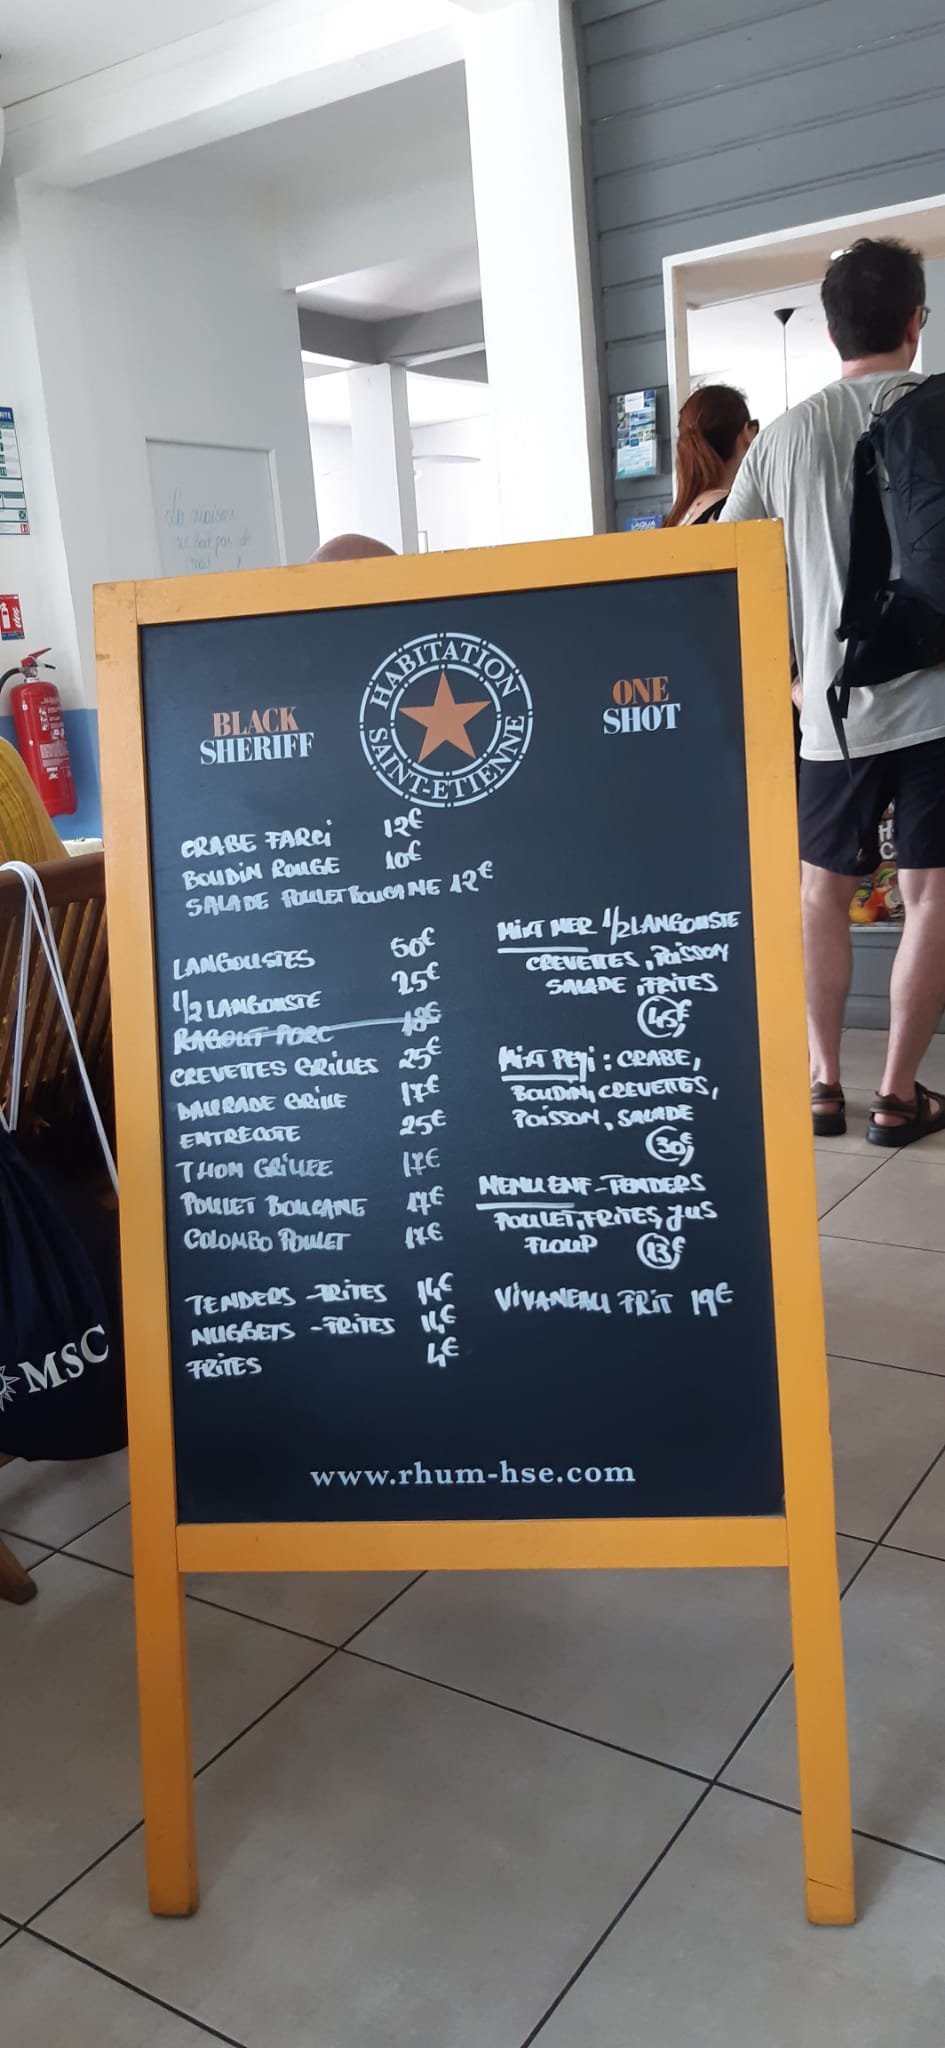 La maison
ne fait pas de
HABITATION
SAINT-ETIENNE
BLACK
SHERIFF
ONE
SHOT
CRABE FARCI 12€
BOUDIN ROUGE 10€
SALADE POULET BOUCANE 12€
LANGOUSTES 50€
1/2 LANGOUSTE 25€
RAGOUT PORC 18€
CREVETTES GRILLES 25€
DAURADE GRILLE 17€
ENTRECOTE 25€
THON GRILLEE 17€
POULET BOUCANE 17€
COLOMBO POULET 17€
TENDERS - FRITES 14€
NUGGETS - FRITES 14€
FRITES 4€
MIXT MER 1/2 LANGOUSTE
CREVETTES, POISSON
SALADE, FRITES
45€
MIXT PEYI : CRABE,
BOUDIN, CREVETTES,
POISSON, SALADE
30€
MENU ENF - TENDERS
POULET, FRITES, JUS
FLOUP 13€
VIVANEAU FRIT 19€
www.rhum-hse.com
MSC